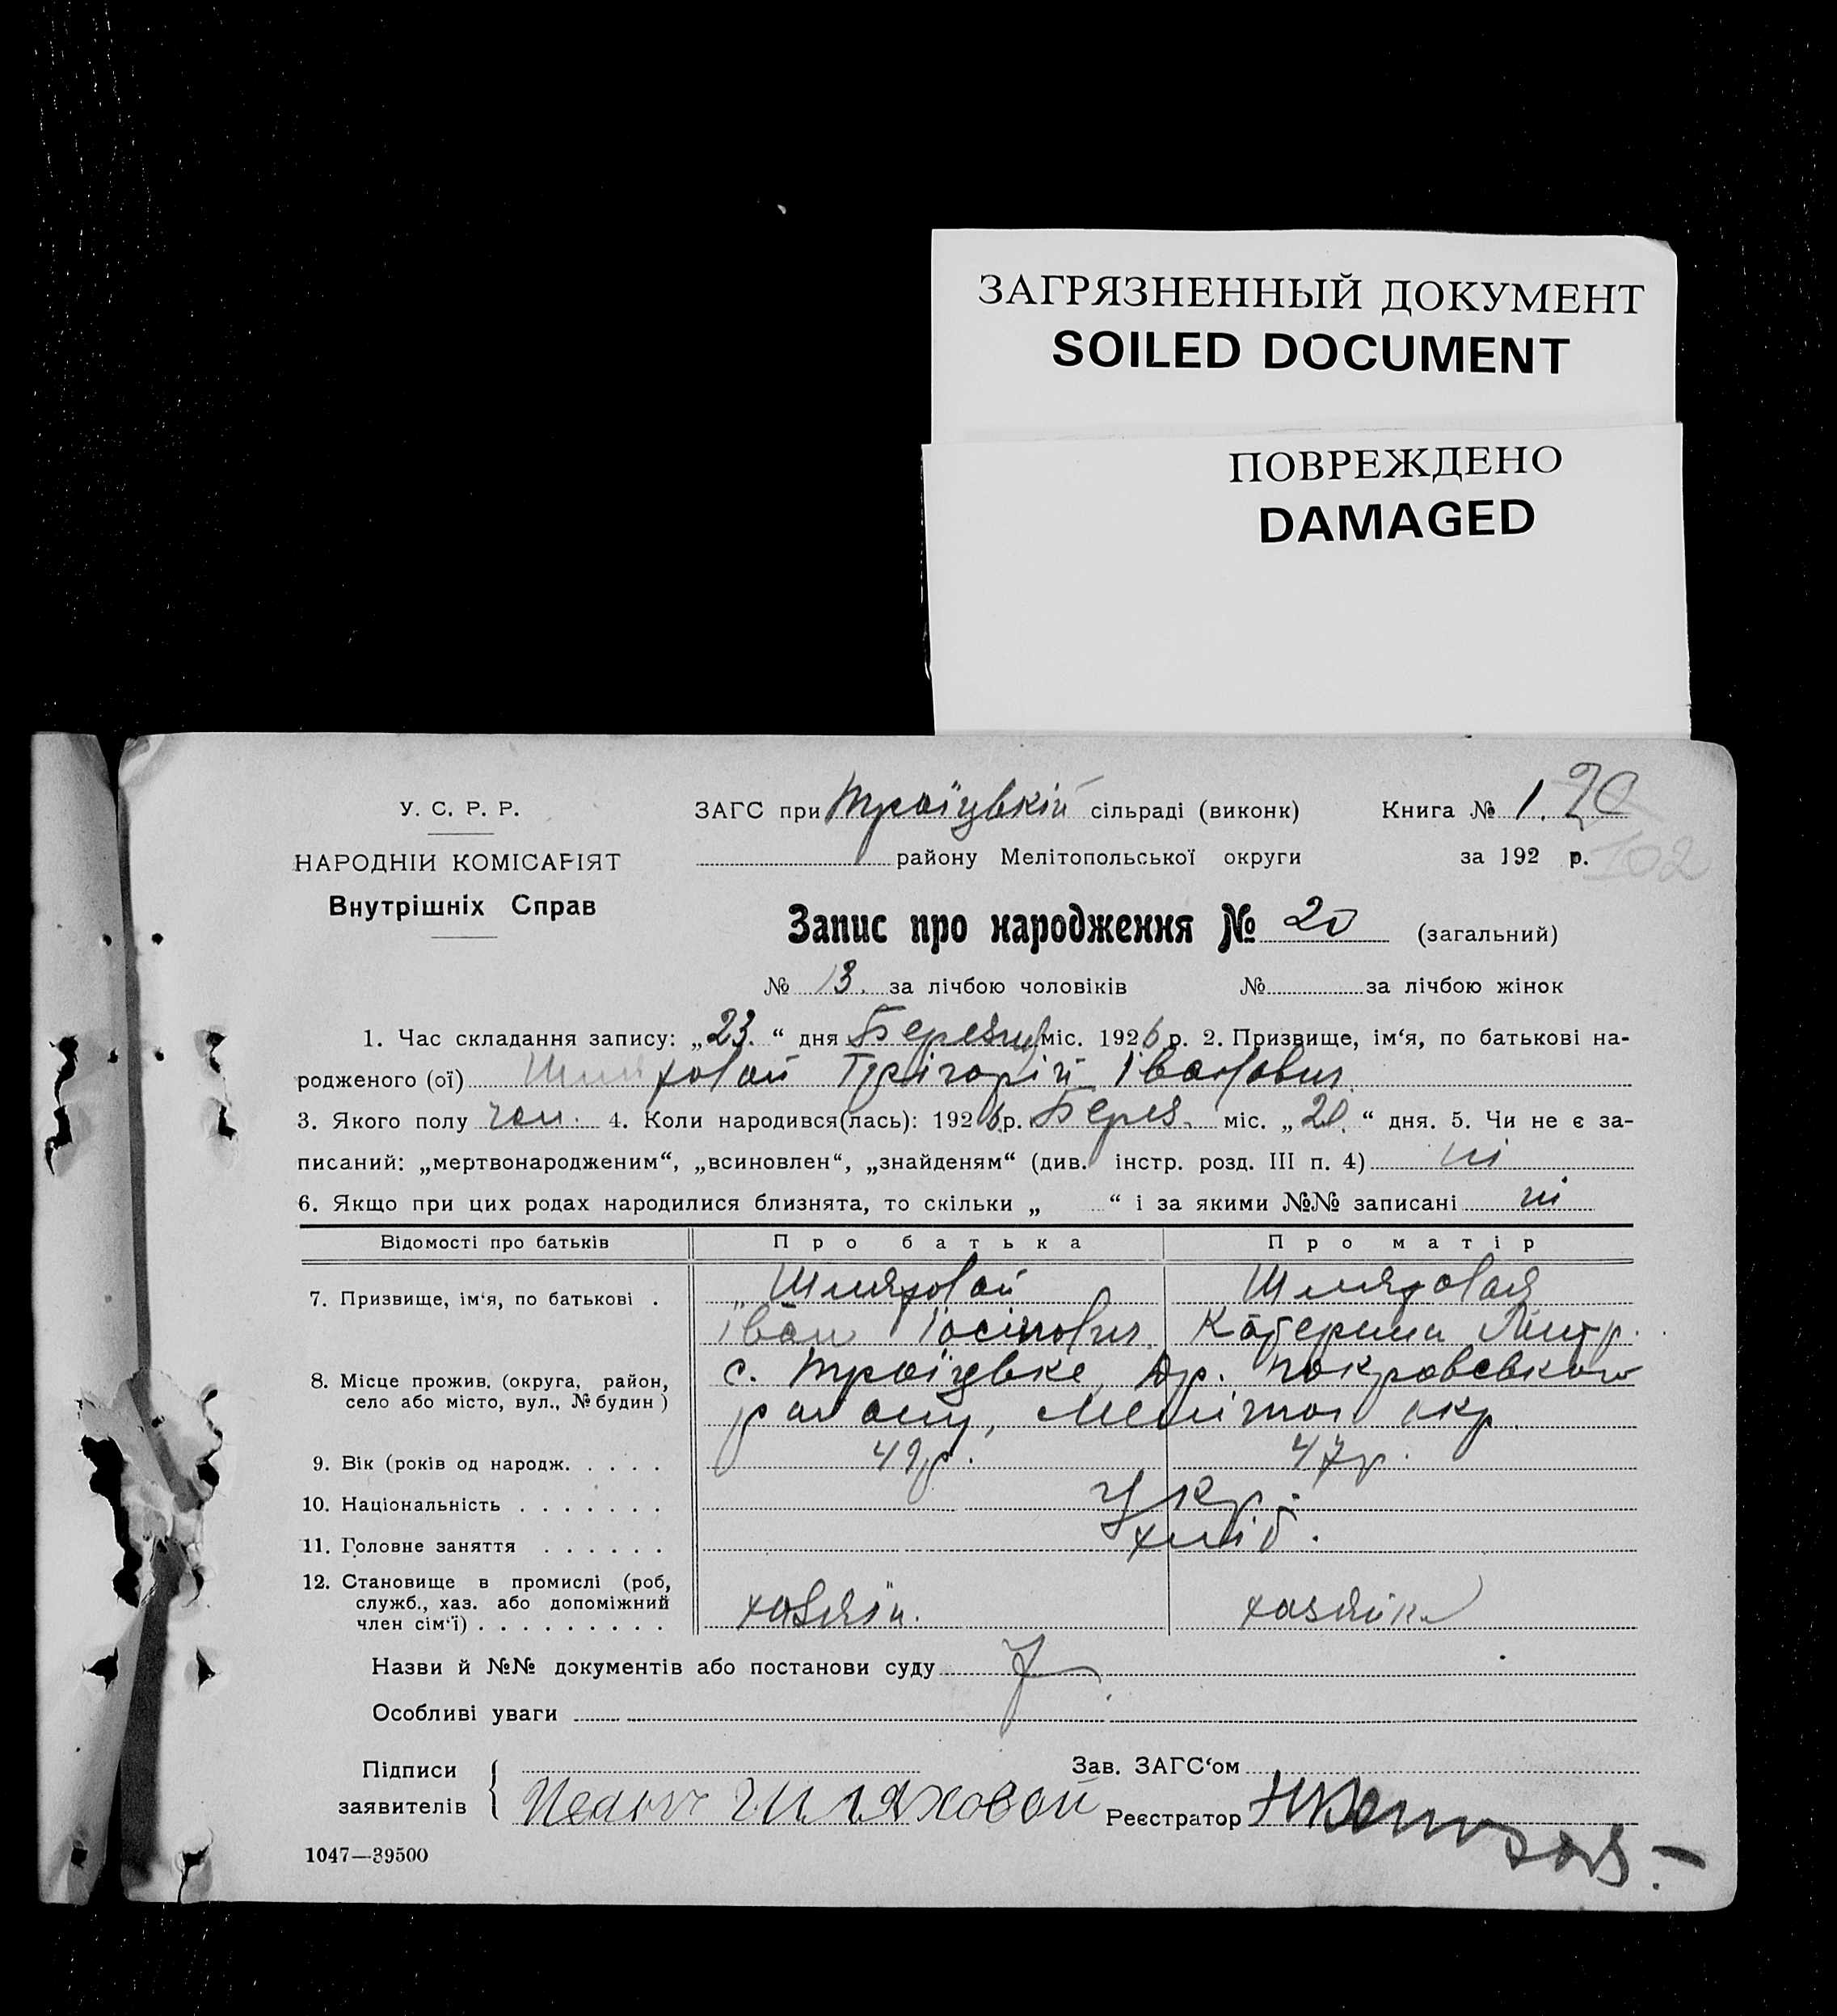 ЗАГРЯЗНЕННЫЙ ДОКУМЕНТ
SOILED DOCUMENT
ПОВРЕЖДЕНО
DAMAGED
У. С. Р. Р.
НАРОДНІЙ КОМІСАРІЯТ
Внутрішніх Справ
ЗАГС при Троїцькій сільраді (виконк) Книга № 1. 20
району Мелітопольської округи за 192 р. 102
Запис про народження № 20 (загальний)
№ 13. за лічбою чоловіків № за лічбою жінок
1. Час складання запису: „23.“ дня Березня міс. 1926 р. 2. Призвище, ім‘я, по батькові на-
родженого (ої) Шляховой Грігорій Іванович.
3. Якого полу чол. 4. Коли народився(лась): 1926 р. Берез. міс. „20.“ дня. 5. Чи не є за-
писаний: „мертвонародженим“, „всиновлен“, „знайденям“ (див. інстр. розд. III п. 4) ні
6. Якщо при цих родах народилися близнята, то скільки „ “ і за якими №№ записані ні
Відомості про батьків Про батька Про матір
7. Призвище, ім‘я, по батькові . Шляховой Шляховая
Іван Іосіпович, Катерина Дмитр.
8. Місце прожив. (округа, район, село або місто, вул., № будин) с. Троїцьке, Покровського
району, Меліто окр.
9. Вік (років од народж. . . . . 49 р. 47 р.
10. Національність . . . . . . . Укр.
11. Головне заняття . . . . . . хліб.
12. Становище в промислі (роб,
служб., хаз. або допоміжний
член сім‘ї) . . . . . . . . . хазяїн. хазяйка
Назви й №№ документів або постанови суду
Особливі уваги
Підписи Зав. ЗАГС‘ом
заявителів Шляховой Реєстратор
1047—39500